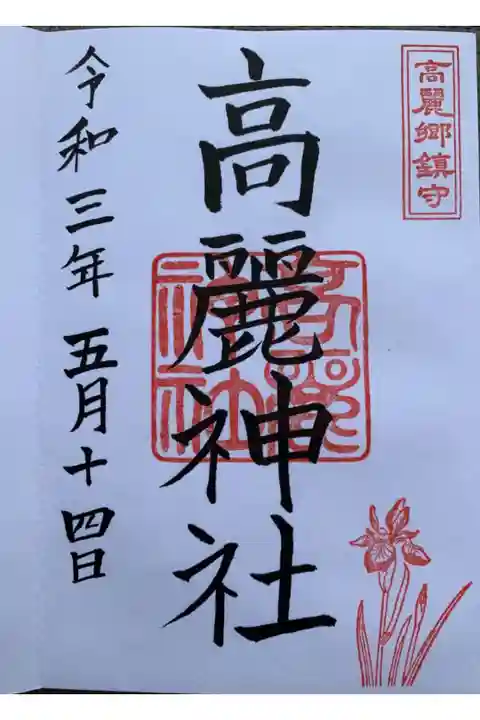 高麗郷鎮守
高麗神社
令和三年五月十四日